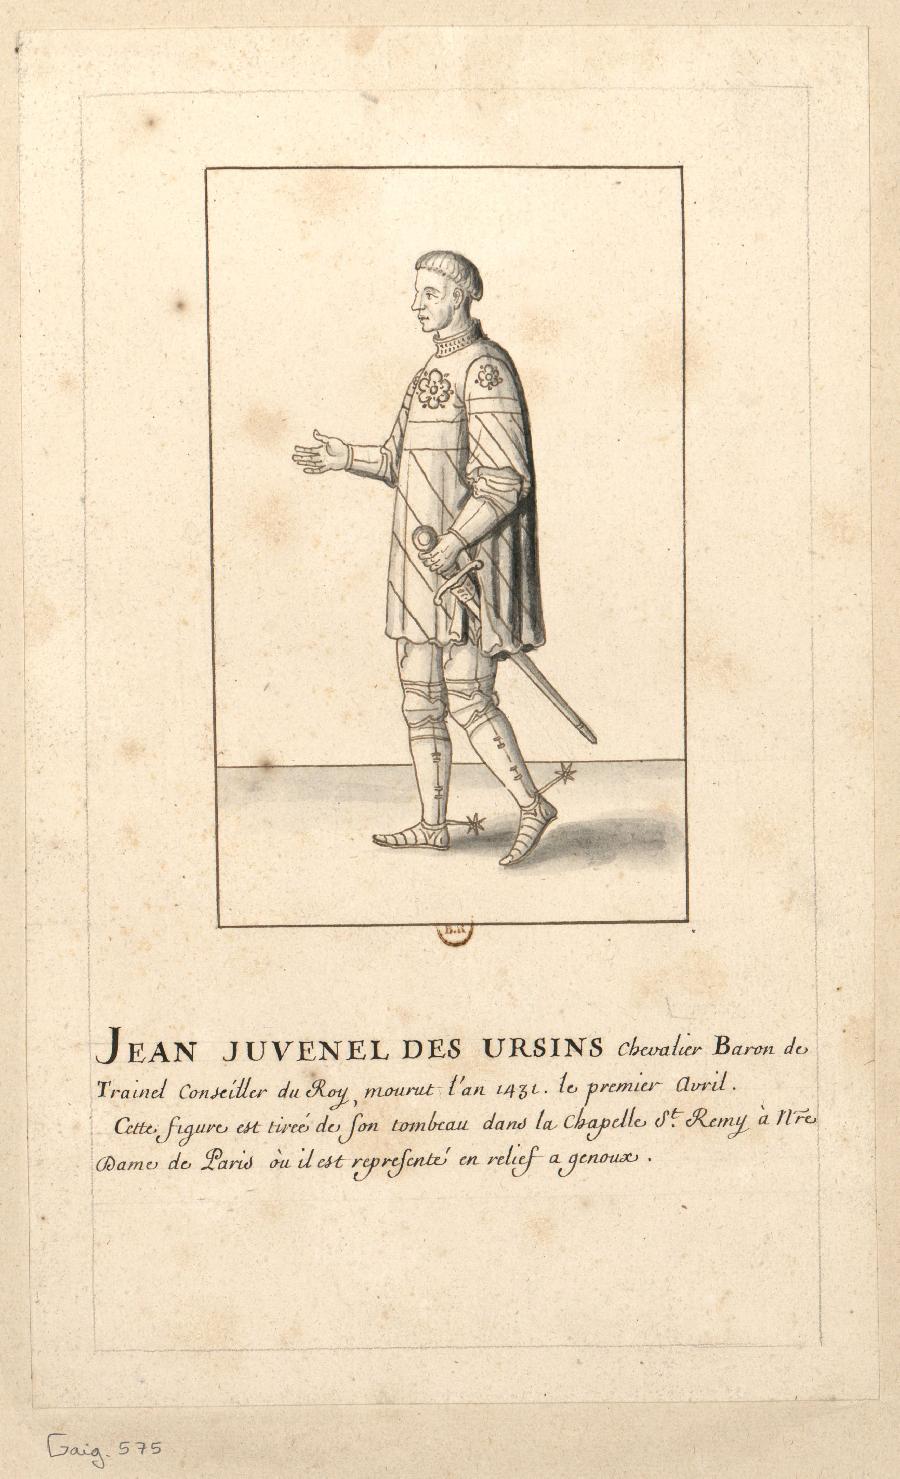 B.R
JEAN JUVENEL DES URSINS Chevalier Baron de
Trainel Conseiller du Roy, mourut l'an 1431. le premier Avril.
Cette figure est tireé de son tombeau dans la Chapelle St. Remy à Nre
Dame de Paris où il est representé en relief a genoux.
Gaig. 575